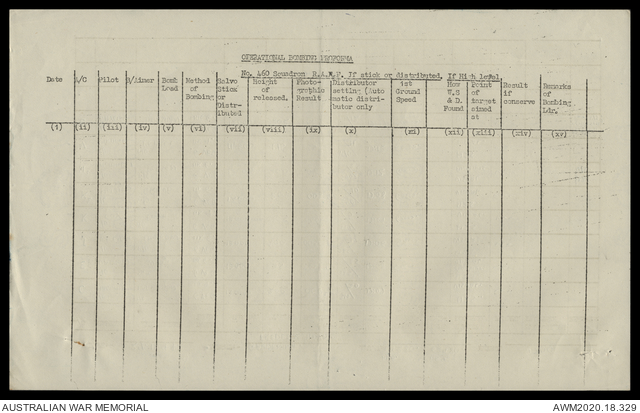 OPERATIONAL BOMBING PROFORMA
No. 460 Squadron R.A.A.F. If stick or distributed. If High level.
Date A/C Pilot B/Aimer Bomb Load Method of Bombing Salvo Stick or Distributed Height of released. Photographic Result Distributor setting (Automatic distributor only 1st Ground Speed How W.S & D. Found Point of target aimed at Result if conserve Remarks of Bombing Ldr.
(i) (ii) (iii) (iv) (v) (vi) (vii) (viii) (ix) (x) (xi) (xii) (xiii) (xiv) (xv)
AUSTRALIAN WAR MEMORIAL
AWM2020.18.329